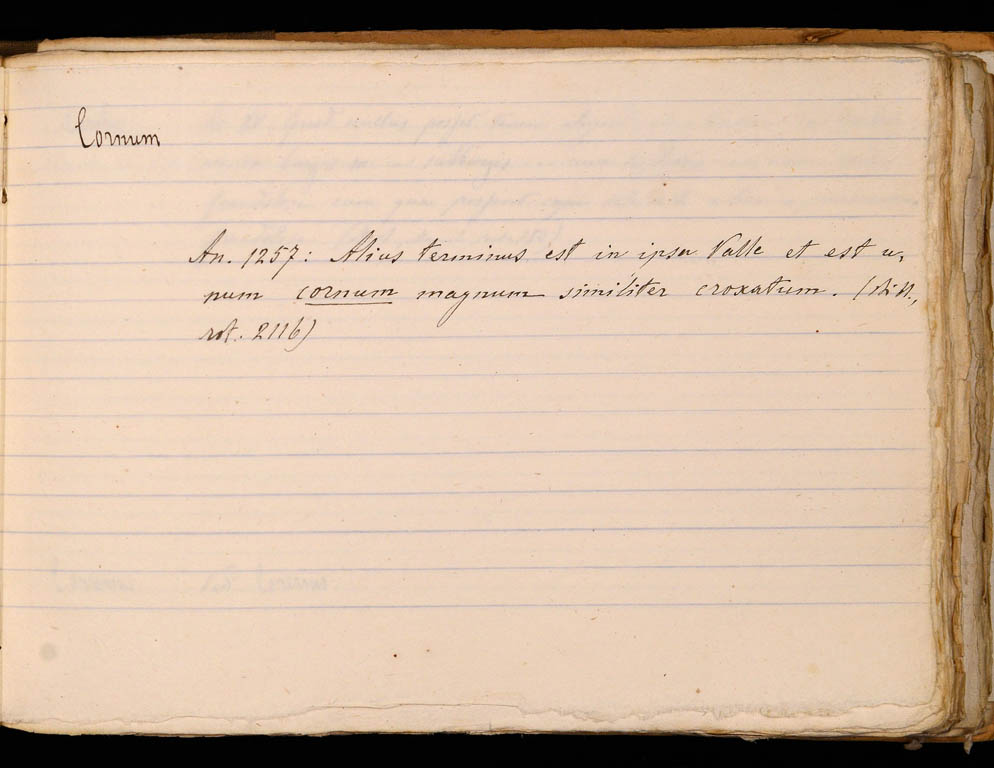 Cornum
An. 1257: Alius terminus est in ipsa Valle et est u,
num cornum magnum similiter croxatum. (
rot. 2116)